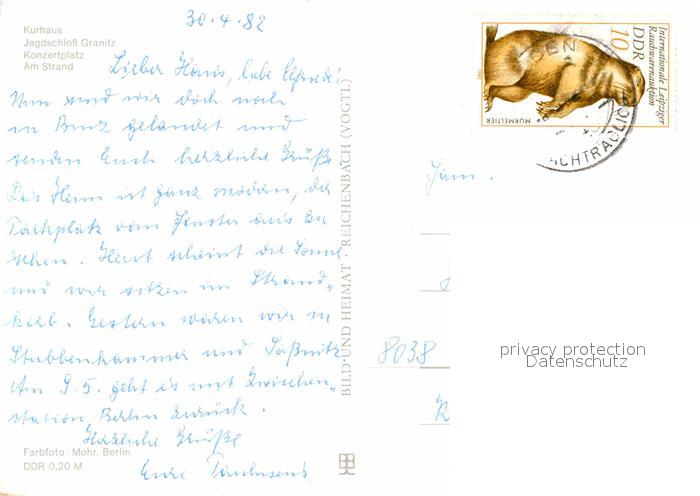 30.4.82
Kurhaus
Jagdschloß Granitz
Konzertplatz
Am Strand
Lieber Hans, liebe Elfriede!
Nun sind wir doch noch
in Binz gelandet und
senden Euch herzliche Grüße
Das Heim ist ganz modern, der
Parkplatz vom Fenster aus zu
sehen. Heut scheint die Sonne
und wir sitzen im Strand-
korb. Gestern waren wir in
Stubbenkammer und Saßnitz.
Am 9.5. geht es mit Zwischen-
station Berlin zurück.
Herzliche Grüße
Eure
Farbfoto: Mohr, Berlin
DDR 0,20 M
BILD UND HEIMAT REICHENBACH (VOGTL)
Internationale Leipziger
Rauchwarenauktion
DDR
10
MURMELTIER
1982
ACHTRÄGLICH
Fam.
8038
privacy protection
Datenschutz